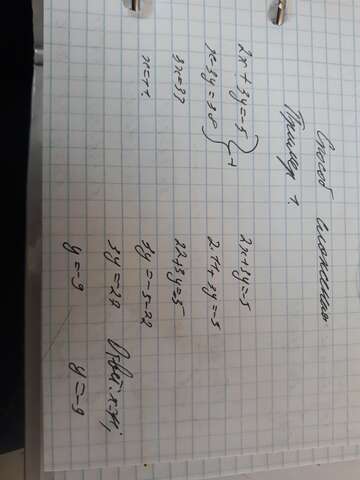 Способ сложения
Пример 1.
2x + 3y = -5
x - 3y = 38
+
3x = 33
x = 11
2x + 3y = -5
2·11 + 3y = -5
22 + 3y = -5
3y = -5 - 22
3y = -27
y = -9
Ответ: x = 11;
y = -9